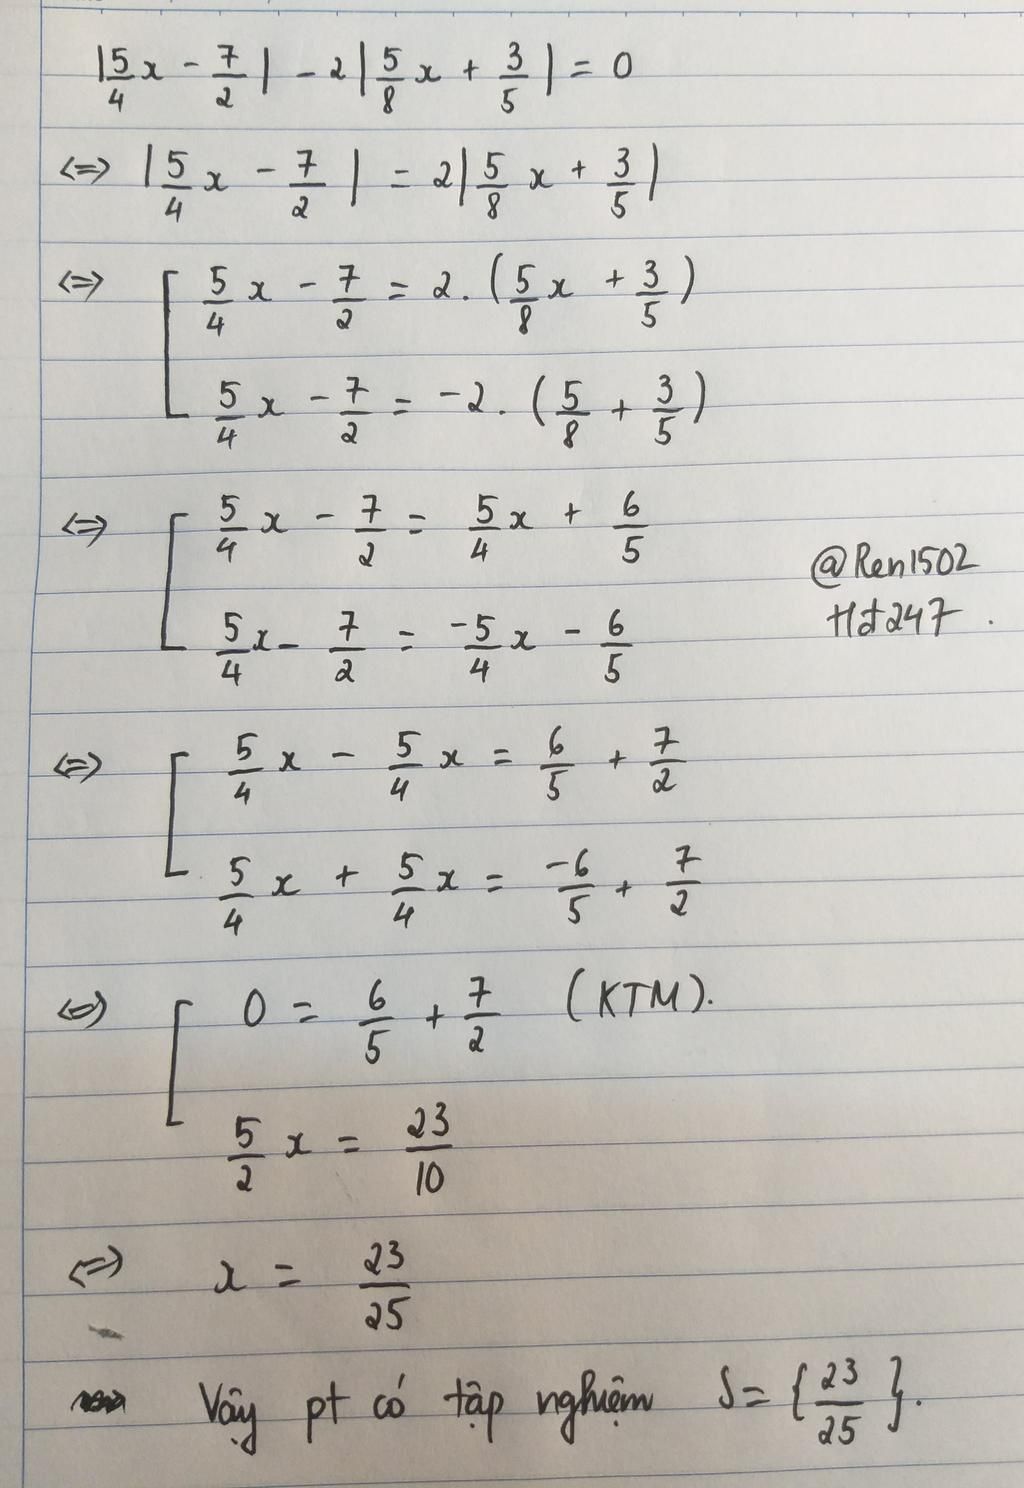 |5/4 x - 7/2| - 2|5/8 x + 3/5| = 0
<=> |5/4 x - 7/2| = 2|5/8 x + 3/5|
<=> [ 5/4 x - 7/2 = 2. (5/8 x + 3/5)
5/4 x - 7/2 = -2. (5/8 + 3/5)
<=> [ 5/4 x - 7/2 = 5/4 x + 6/5
5/4 x - 7/2 = -5/4 x - 6/5
@Ren1502
Hd247.
<=> [ 5/4 x - 5/4 x = 6/5 + 7/2
5/4 x + 5/4 x = -6/5 + 7/2
<=> [ 0 = 6/5 + 7/2 (KTM).
5/2 x = 23/10
<=> x = 23/25
Vậy pt có tập nghiệm S = {23/25}.